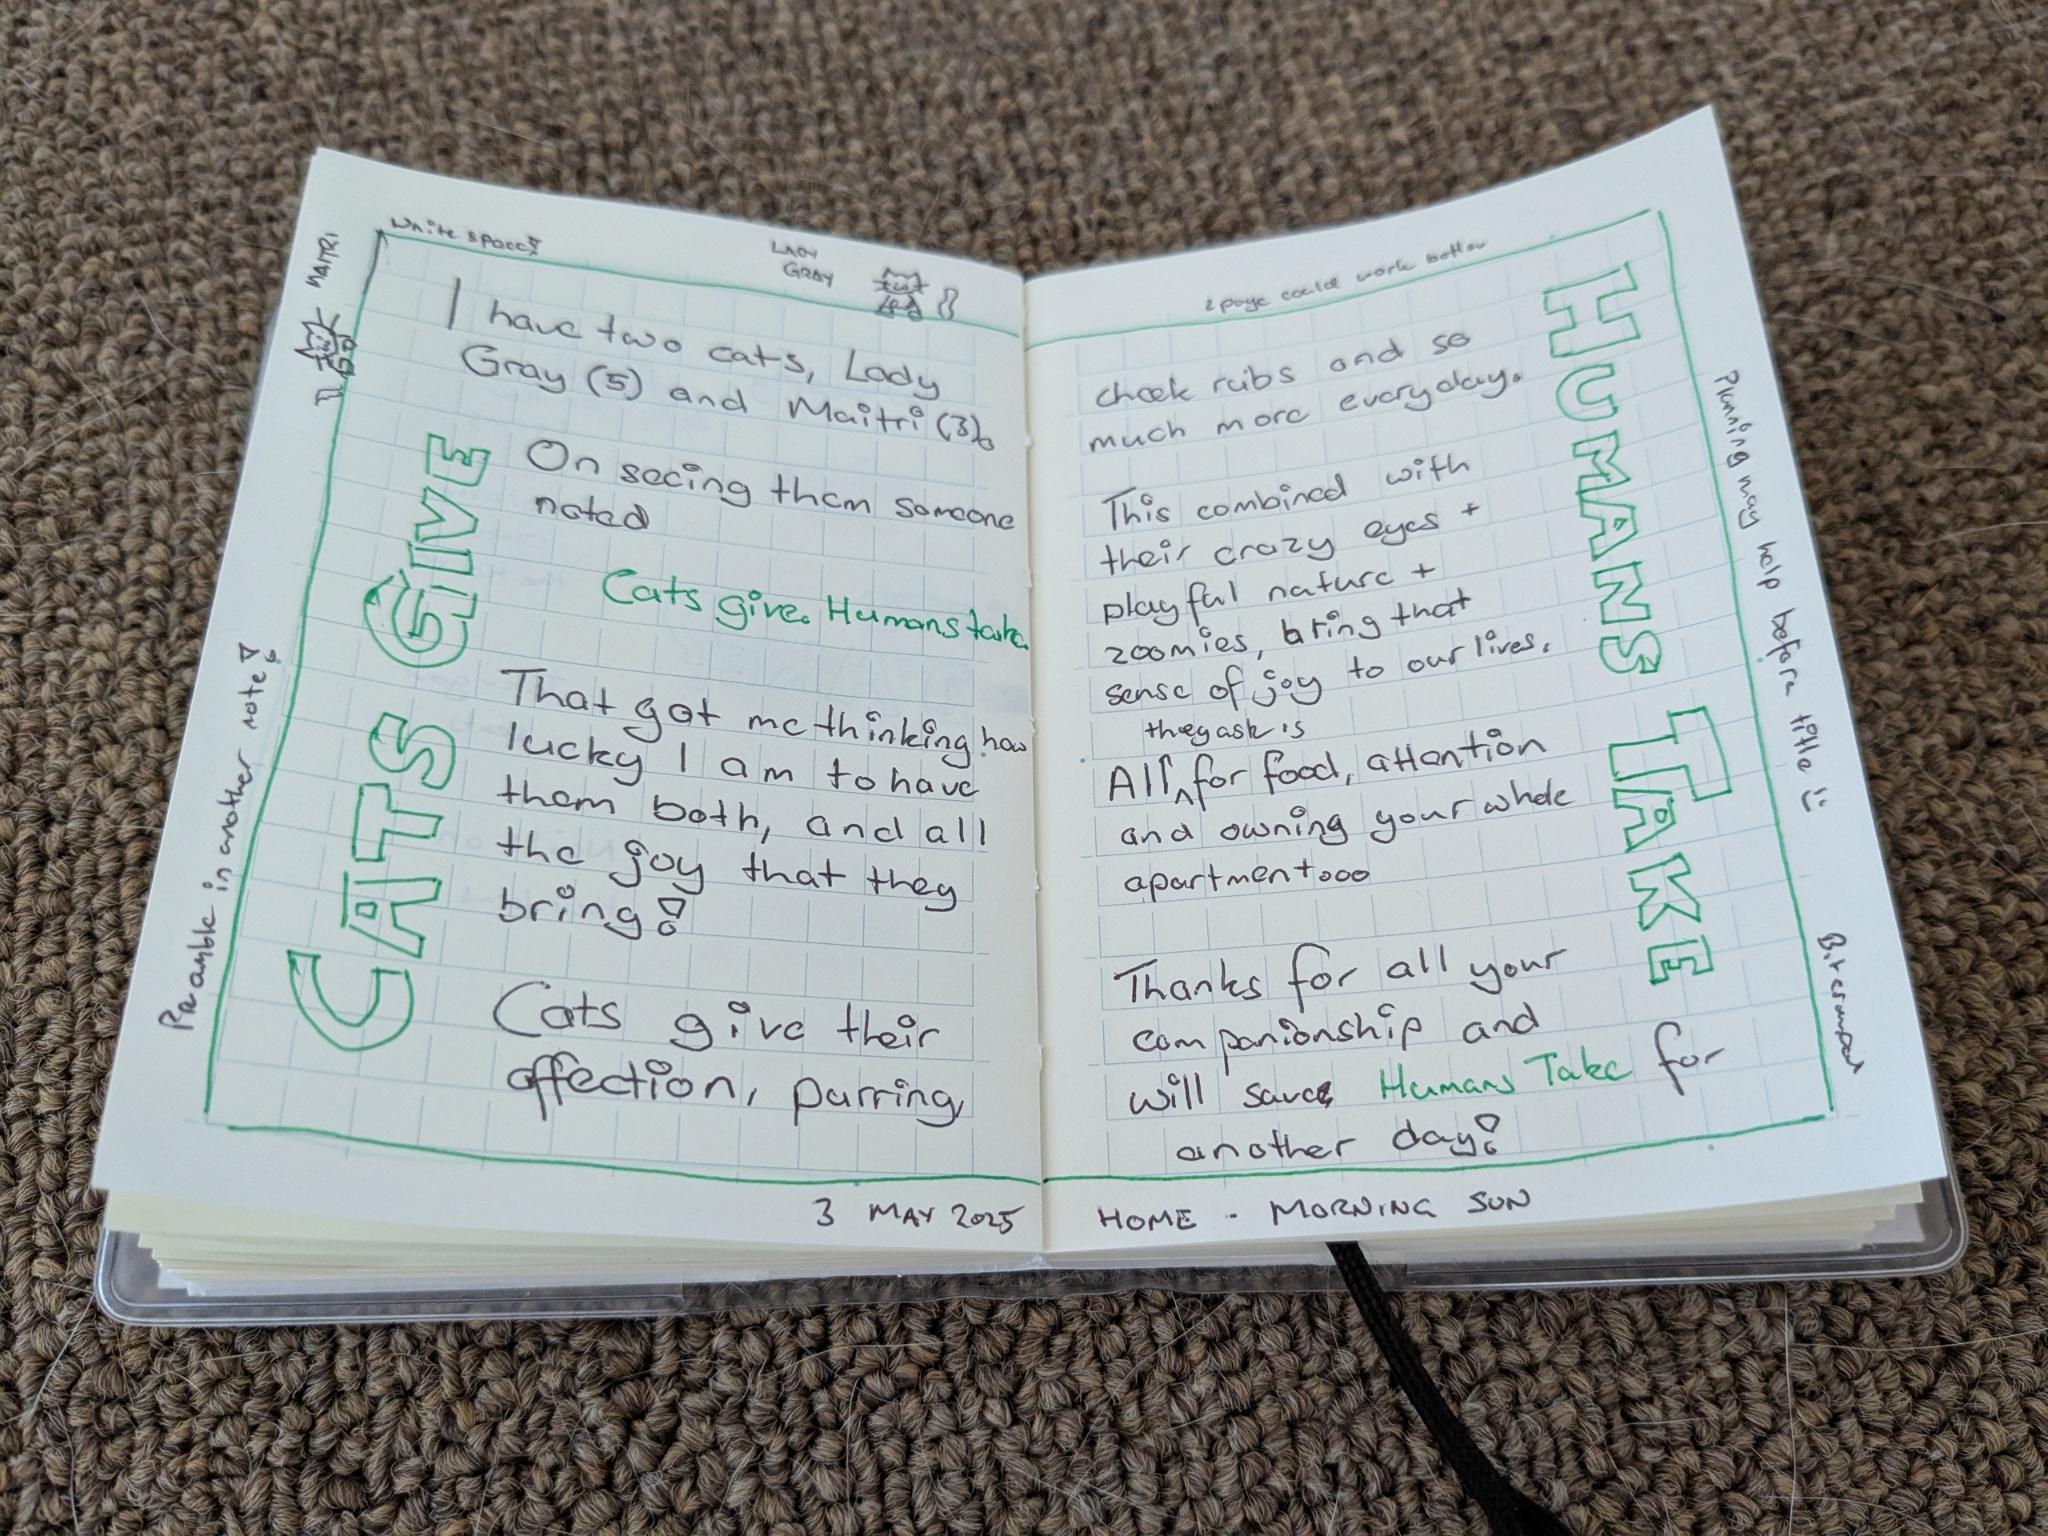 White space!
LADY
GRAY
MAITRI
CATS GIVE
Preamble in another note!
I have two cats, Lady
Gray (5) and Maitri (3).
On seeing them someone
noted
Cats give. Humans take.
That got me thinking how
lucky I am to have
them both, and all
the joy that they
bring!
Cats give their
affection, purring,
3 MAY 2025
2 page could work better
cheek rubs and so
much more everyday.
This combined with
their crazy eyes +
playful nature +
zoomies, bring that
sense of joy to our lives.
they ask is
All ^ for food, attention
and owning your whole
apartment...
Thanks for all your
companionship and
will save Humans Take for
another day!
HUMANS TAKE
Planning may help before title :)
Bit cramped
HOME - MORNING SUN